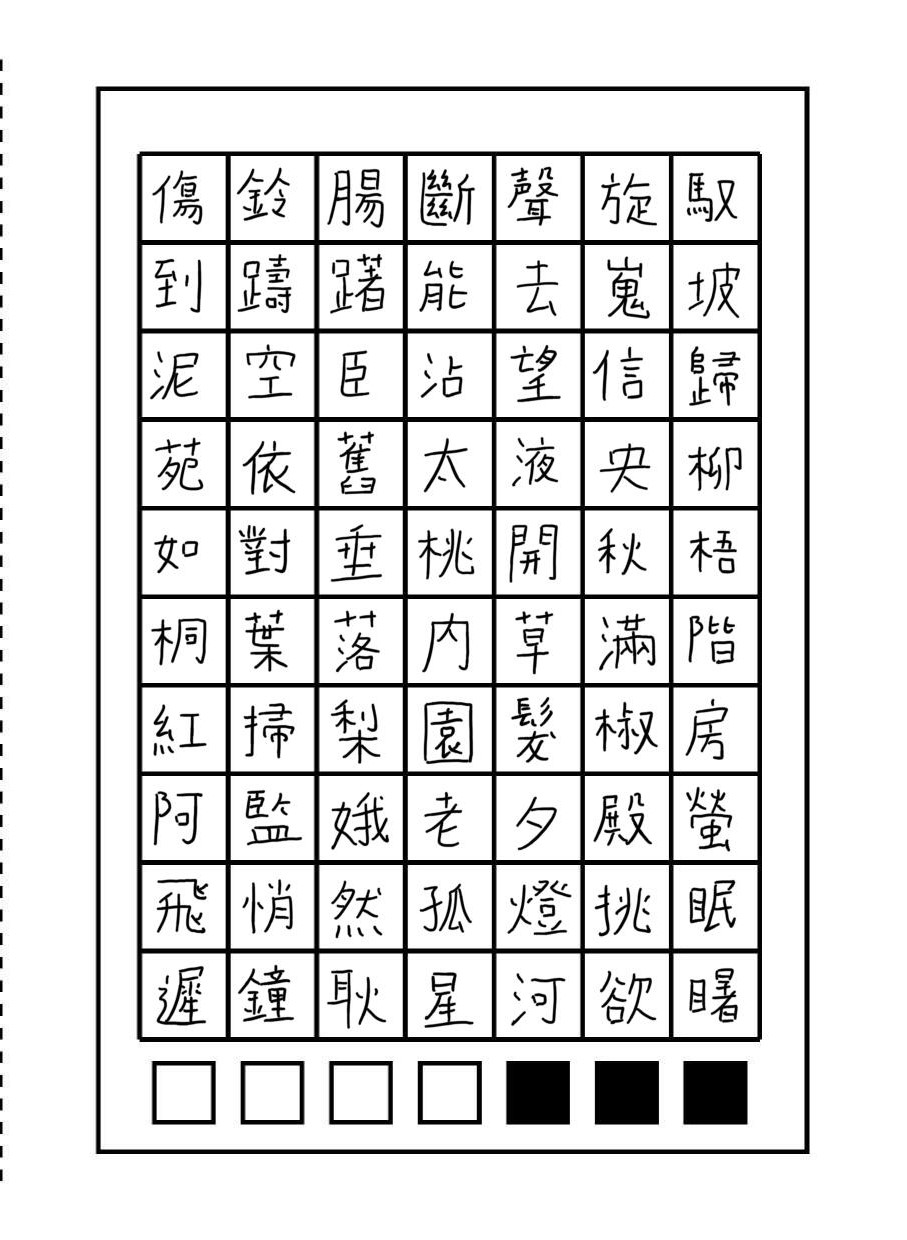 傷鈴腸斷聲旋馭
到躊躇能去嵬坡
泥空臣沾望信歸
苑依舊太液央柳
如對垂桃開秋梧
桐葉落内草滿階
紅掃梨園髮椒房
阿監娥老夕殿螢
飛悄然孤燈挑眠
遲鐘耿星河欲曙